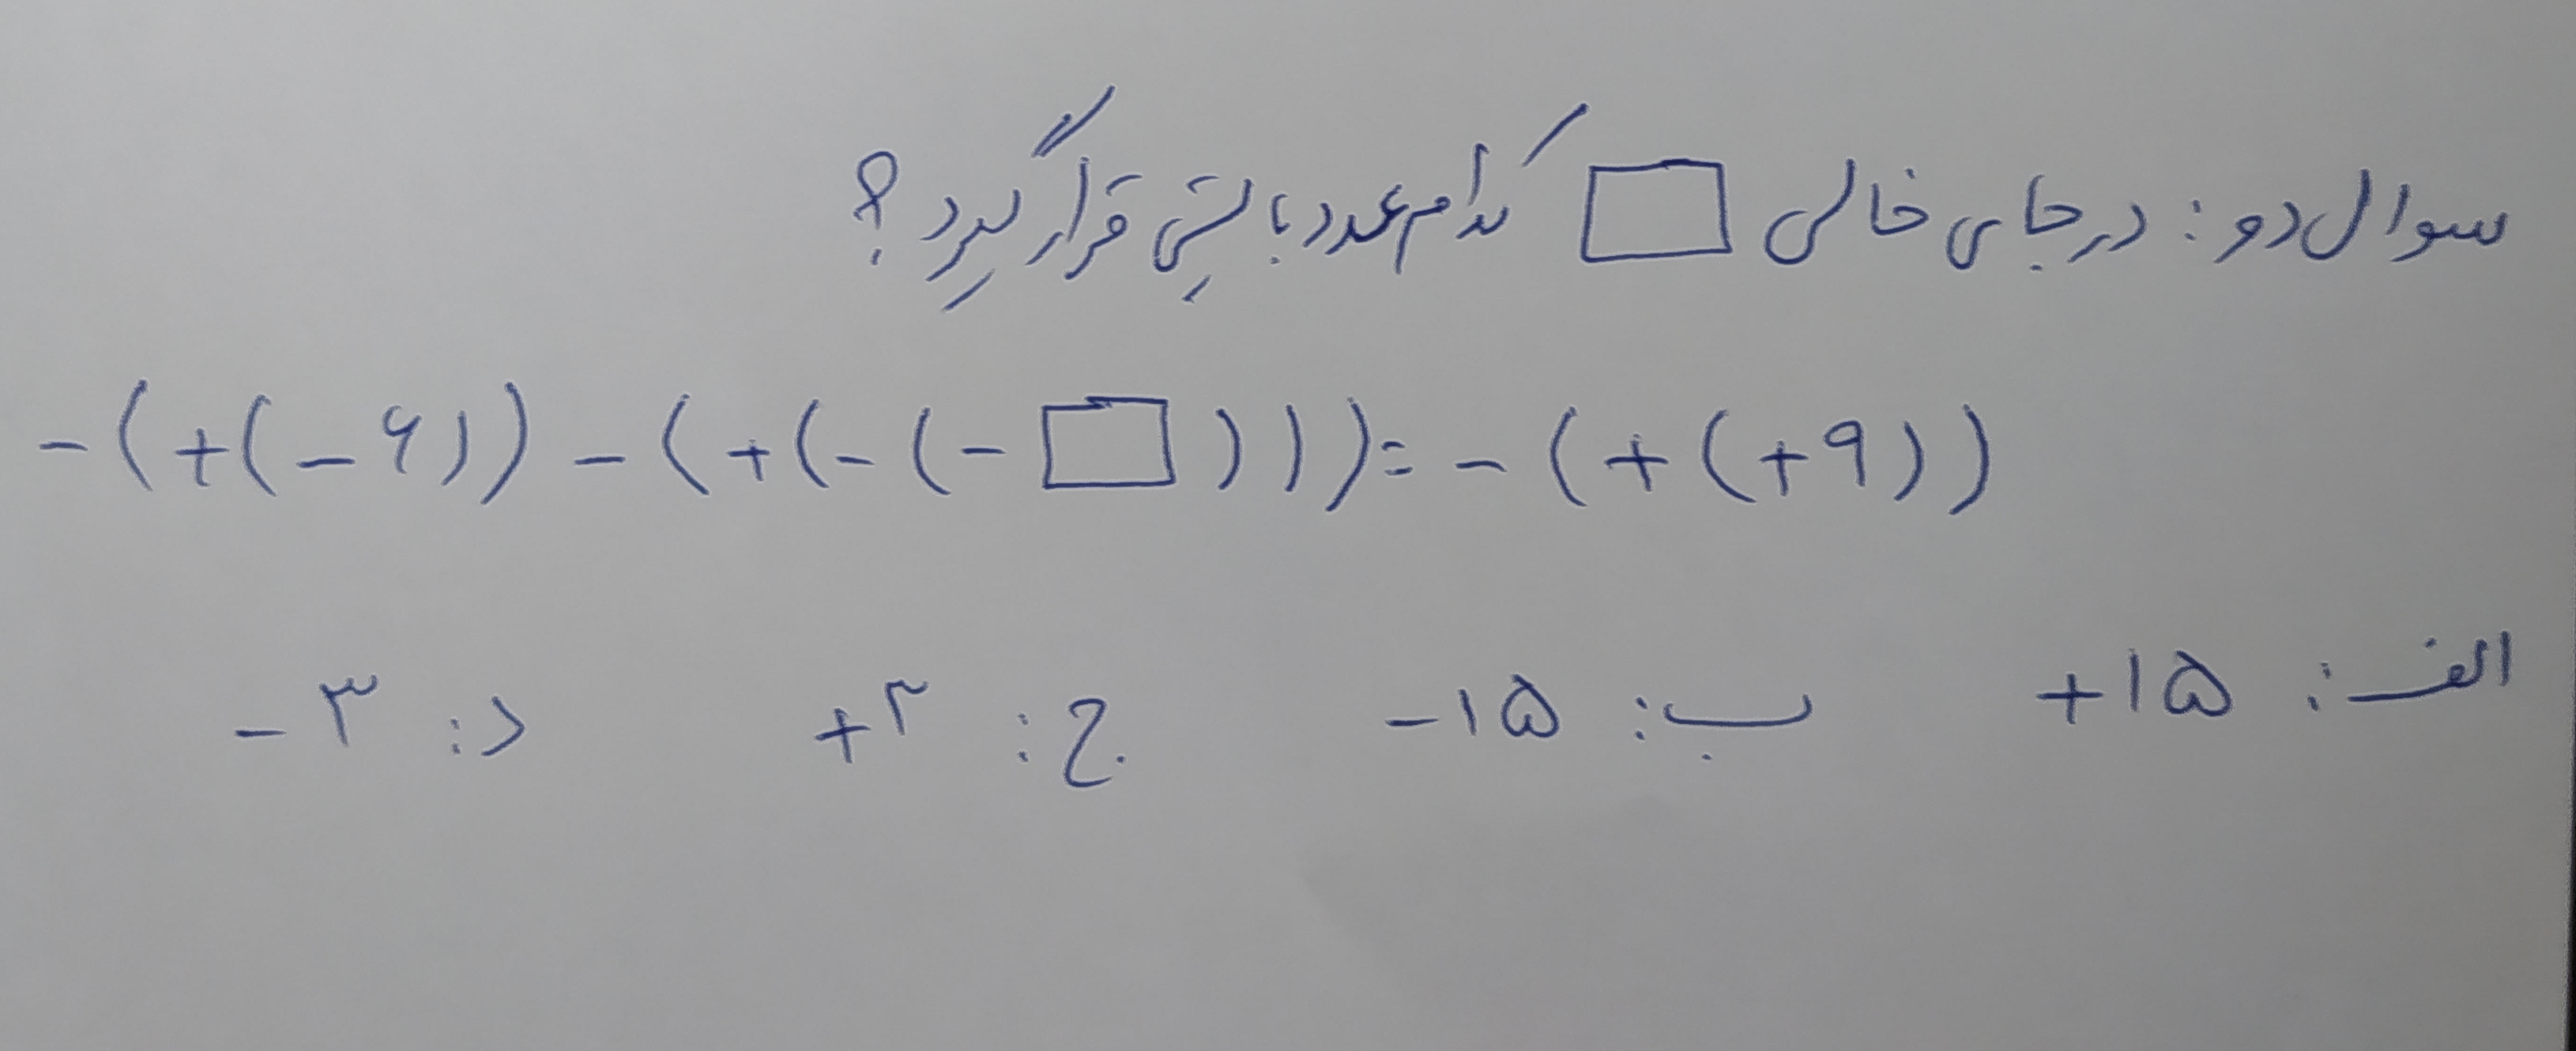 سوال دو: در جای خالی □ کدام عدد بایستی قرار گیرد؟
-(+(-۶))-(+(-(-□)))=-(+(+۹))
الف: +۱۵ ب: -۱۵ ج: +۳ د: -۳